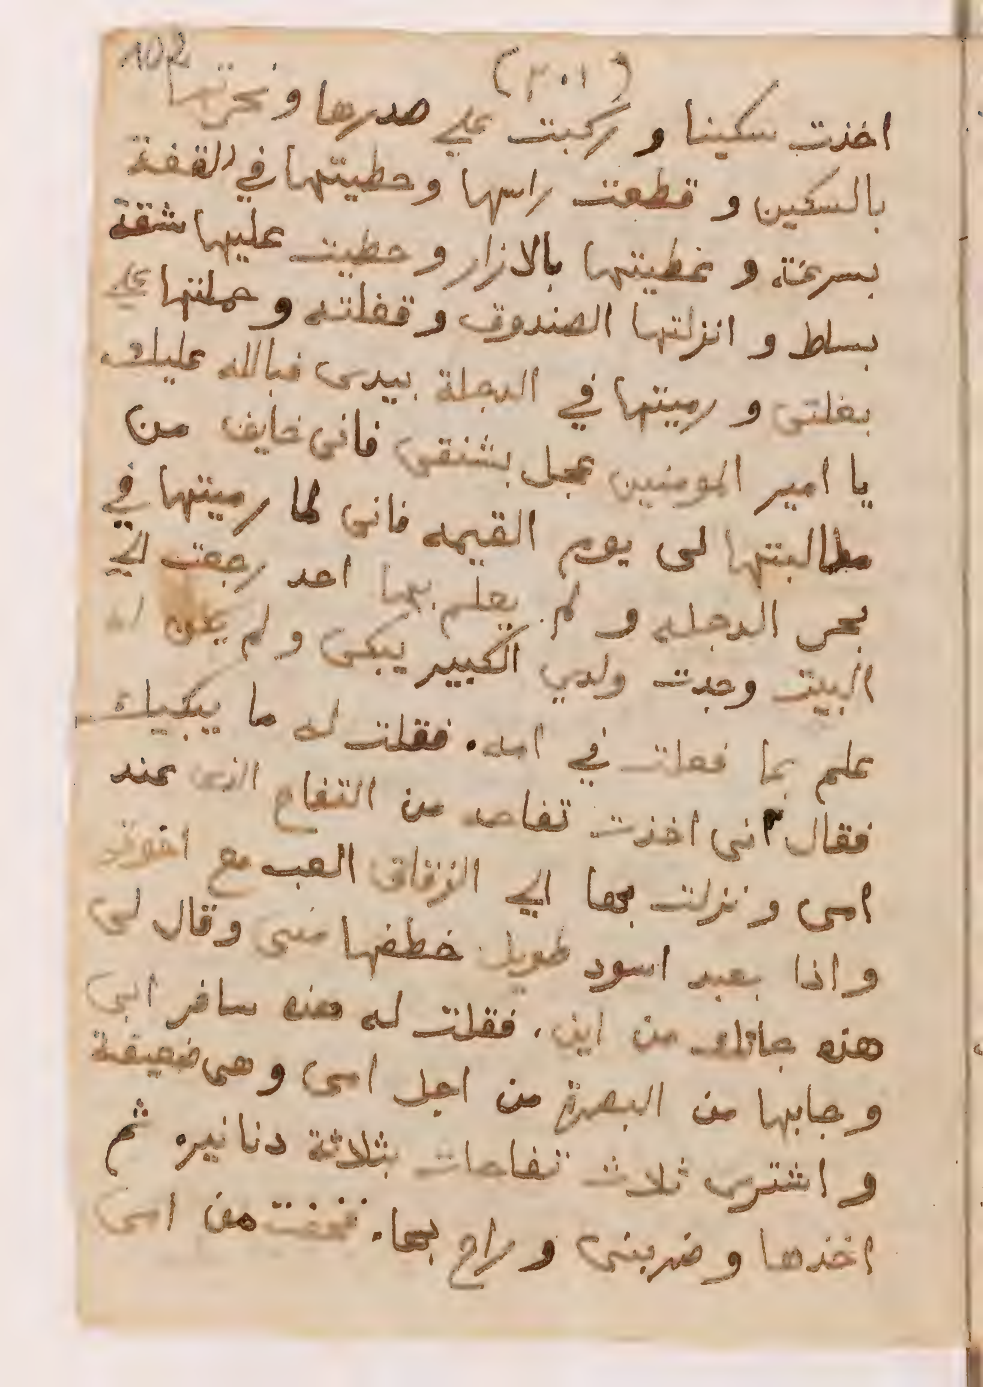 102
(٢٠١)
اخذت سكينا و ركبت علي صدرها و نحرتها
بالسكين و قطعت راسها وحطيتها في القفة
بسرعة و غطيتها بالازار و حطيت عليها شقة
بساط و انزلتها الصندوق و قفلته و حملتها علي
بغلتى و رميتها في الدجلة بيدى فبالله عليك
يا امير المومنين عجل بشنقى فانى خايف من
مطالبتها لى يوم القيمه فانى لما رميتها في
بحر الدجله و لم يعلم بها احد رجعت الي
البيت وجدت ولدي الكبير يبكى و لم يكن له
علم بما فعلت في امه. فقلت له ما يبكيك
فقال انى اخذت تفاحه من التفاح الذى عند
امى و نزلت بها الي الزقاق العب مع اخوتى
و اذا بعبد اسود طويل خطفها منى وقال لى
هذه جاتك من اين. فقلت له هذه سافر ابى
و جابها من البصرة من اجل امى و هى ضعيفة
و اشترى ثلاث تفاحات بثلاثة دنانيره ثم
اخذها و ضربنى و راح بها. فخفت من امى